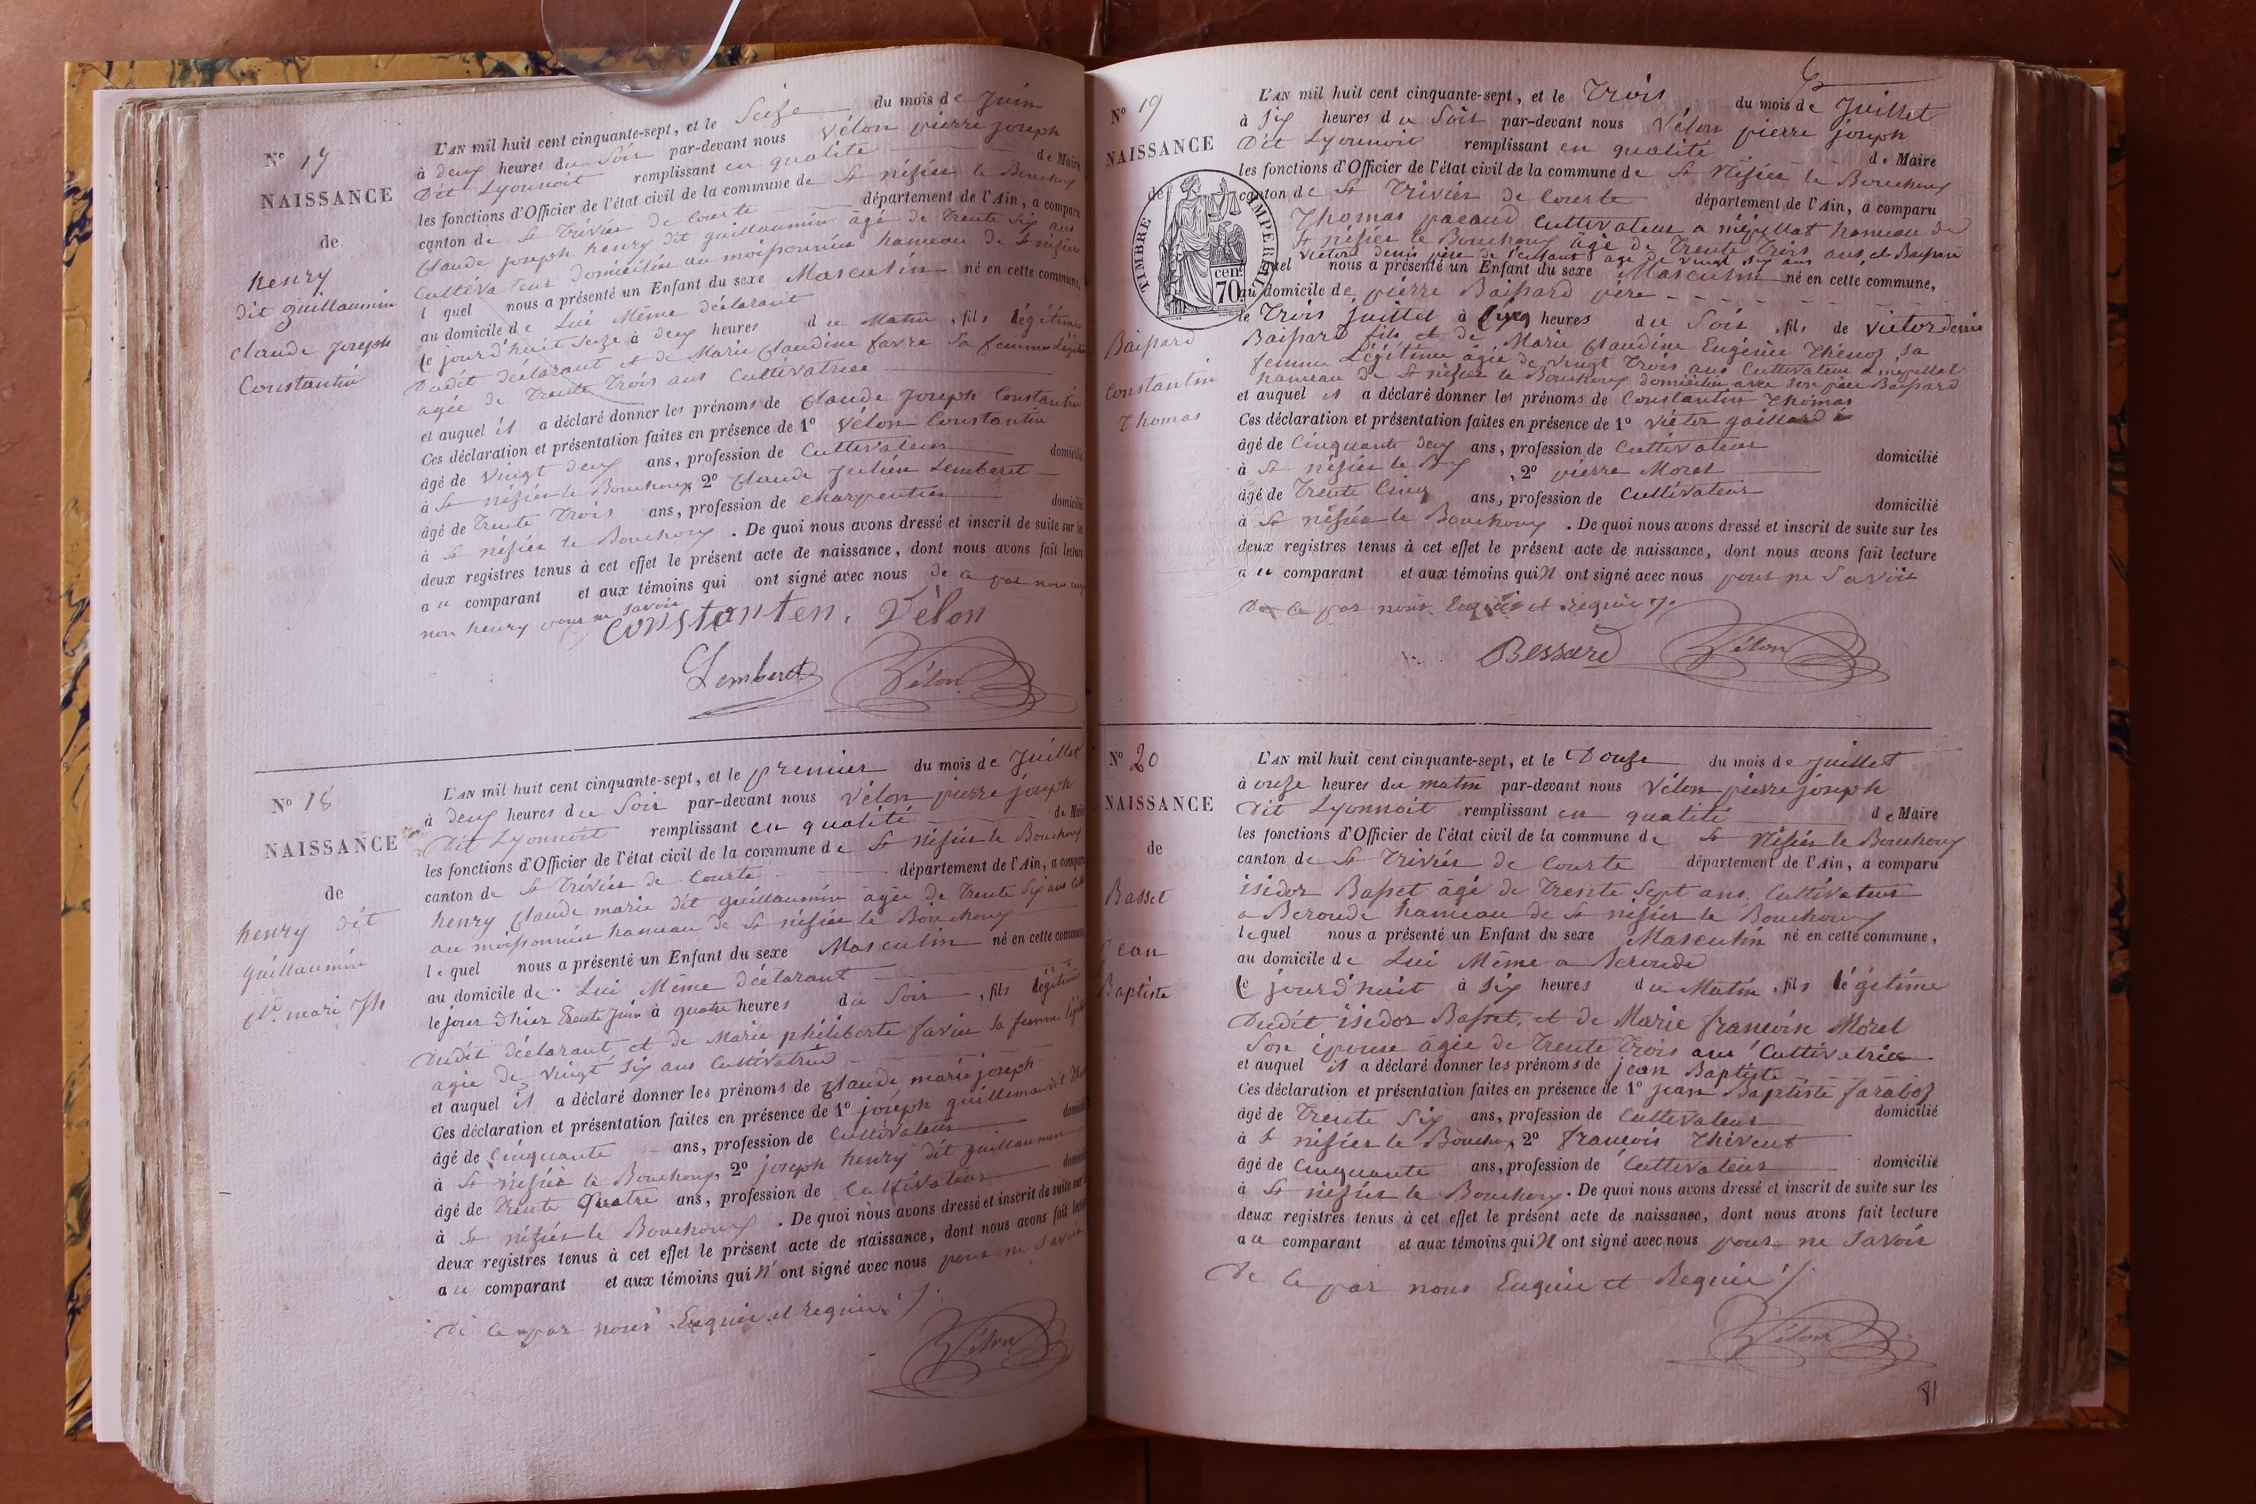 N° 17
NAISSANCE
de
henry
dit guillaumin
claude joseph
Constantin
L'AN mil huit cent cinquante-sept, et le Seize du mois de Juin
à deux heures du Soir par-devant nous Vélon pierre joseph
Dit Lyonnoit remplissant en qualité de Maire
les fonctions d'Officier de l'état civil de la commune de St Nisier le Bouchoux
canton de St Trivier de Courte département de l'Ain, a comparu
Claude joseph henry dit guillaumin âgé de Trente Six ans
Cultivateur domicilié au moissonnier hameau de St nisier
l quel nous a présenté un Enfant du sexe Masculin né en cette commune,
au domicile de Lui Même déclarant
le jourd'huit Seize à deux heures du Matin, fils légitime
Dudit déclarant et de Marie Claudine favre Sa femme
agée de Trente Trois ans Cultivatrice
et auquel il a déclaré donner les prénoms de Claude Joseph Constantin
Ces déclaration et présentation faites en présence de 1° Vélon Constantin
âgé de vingt deux ans, profession de Cultivateur domicilié
à St nisier le Bouchoux 2° Claude Julien Lemberet
âgé de Trente Trois ans, profession de charpentier domicilié
à St nisier le Bouchoux. De quoi nous avons dressé et inscrit de suite sur les
deux registres tenus à cet effet le présent acte de naissance, dont nous avons fait lecture
au comparant et aux témoins qui ont signé avec nous de ce par nous
non henry pour ne savoir
Constanten. Vélon
Lemberet Vélon
N° 18
NAISSANCE
de
henry dit
guillaumin
Cde mari Jh
L'AN mil huit cent cinquante-sept, et le premier du mois de Juillet
à deux heures du Soir par-devant nous Vélon pierre joseph
Dit Lyonnoit remplissant en qualité de Maire
les fonctions d'Officier de l'état civil de la commune de St Nisier le Bouchoux
canton de St Trivier de Courte département de l'Ain, a comparu
henry Claude marie dit guillaumin âgée de Trente Six ans
au moissonnier hameau de St nisier le Bouchoux
le quel nous a présenté un Enfant du sexe Masculin né en cette commune
au domicile de Lui Même déclarant
le jour d'hier Trente Juin à quatre heures du Soir, fils légitime
Dudit déclarant et de Marie philiberte favier sa femme
agée de vingt Six ans Cultivatrice
et auquel il a déclaré donner les prénoms de Claude marie joseph
Ces déclaration et présentation faites en présence de 1° joseph guilleman dit
âgé de Cinquante ans, profession de Cultivateur domicilié
à St nisier le Bouchoux, 2° joseph henry dit guillaumin
âgé de Trente Quatre ans, profession de Cultivateur domicilié
à St nisier le Bouchoux. De quoi nous avons dressé et inscrit de suite sur
deux registres tenus à cet effet le présent acte de naissance, dont nous avons fait lecture
au comparant et aux témoins qui N' ont signé avec nous pour ne Savoir
De ce par nous Enquie et requie
Vélon
N° 19
NAISSANCE
de
TIMBRE IMPERIAL
70 cent
Baissard
Constantin
Thomas
L'AN mil huit cent cinquante-sept, et le Trois du mois de Juillet
à Six heures du Soir par-devant nous Vélon pierre joseph
Dit Lyonnoit remplissant en qualité de Maire
les fonctions d'Officier de l'état civil de la commune de St Nisier le Bouchoux
canton de St Trivier de Courte département de l'Ain, a comparu
Thomas pacaud Cultivateur a mépillat hameau de
St nisier le Bouchoux âgé de Trente Trois ans, et Baissard
victor denis père de l'enfant âgé de vingt six ans
quel nous a présenté un Enfant du sexe Masculin né en cette commune,
au domicile de pierre Baissard père
le Trois juillet à Cinq heures du Soir, fils de victor denis
Baissard fils et de Marie Claudine Eugénie Thénoz sa
femme Légitime âgée de vingt Trois ans Cultivateur a mépillat
hameau de St nisier le Bouchoux domicilié avec son père Baissard
et auquel il a déclaré donner les prénoms de Constantin Thomas
Ces déclaration et présentation faites en présence de 1° Victor gaillard
âgé de Cinquante deux ans, profession de Cultivateur domicilié
à St nisier le Bx, 2° pierre Morel
âgé de Trente Cinq ans, profession de Cultivateur domicilié
à St nisier le Bouchoux. De quoi nous avons dressé et inscrit de suite sur les
deux registres tenus à cet effet le présent acte de naissance, dont nous avons fait lecture
au comparant et aux témoins qui N ont signé avec nous pour ne Savoir
De ce par nous Enquie et requie
Bessard Vélon
N° 20
NAISSANCE
de
Basset
Jean
Baptiste
L'AN mil huit cent cinquante-sept, et le Douse du mois de Juillet
à onse heures du matin par-devant nous Vélon pierre joseph
Dit Lyonnoit remplissant en qualité de Maire
les fonctions d'Officier de l'état civil de la commune de St Nisier le Bouchoux
canton de St Trivier de Courte département de l'Ain, a comparu
isidor Basset âgé de Trente Sept ans Cultivateur
a Beroude hameau de St nisier le Bouchoux
le quel nous a présenté un Enfant du sexe Masculin né en cette commune,
au domicile de Lui Même a Beroude
le jourd'huit à Six heures du Matin, fils légitime
Dudit isidor Basset, et de Marie francoise Morel
Son épouse agée de Trente Trois ans Cultivatrice
et auquel il a déclaré donner les prénoms de jean Baptiste
Ces déclaration et présentation faites en présence de 1° jean Baptiste faraboz
âgé de Trente Six ans, profession de Cultivateur domicilié
à St nisier le Bouchoux 2° francois Thévent
âgé de Cinquante ans, profession de Cultivateur domicilié
à St nisier le Bouchoux. De quoi nous avons dressé et inscrit de suite sur les
deux registres tenus à cet effet le présent acte de naissance, dont nous avons fait lecture
au comparant et aux témoins qui N ont signé avec nous pour ne Savoir
De ce par nous Enquie et Requie
Vélon
81